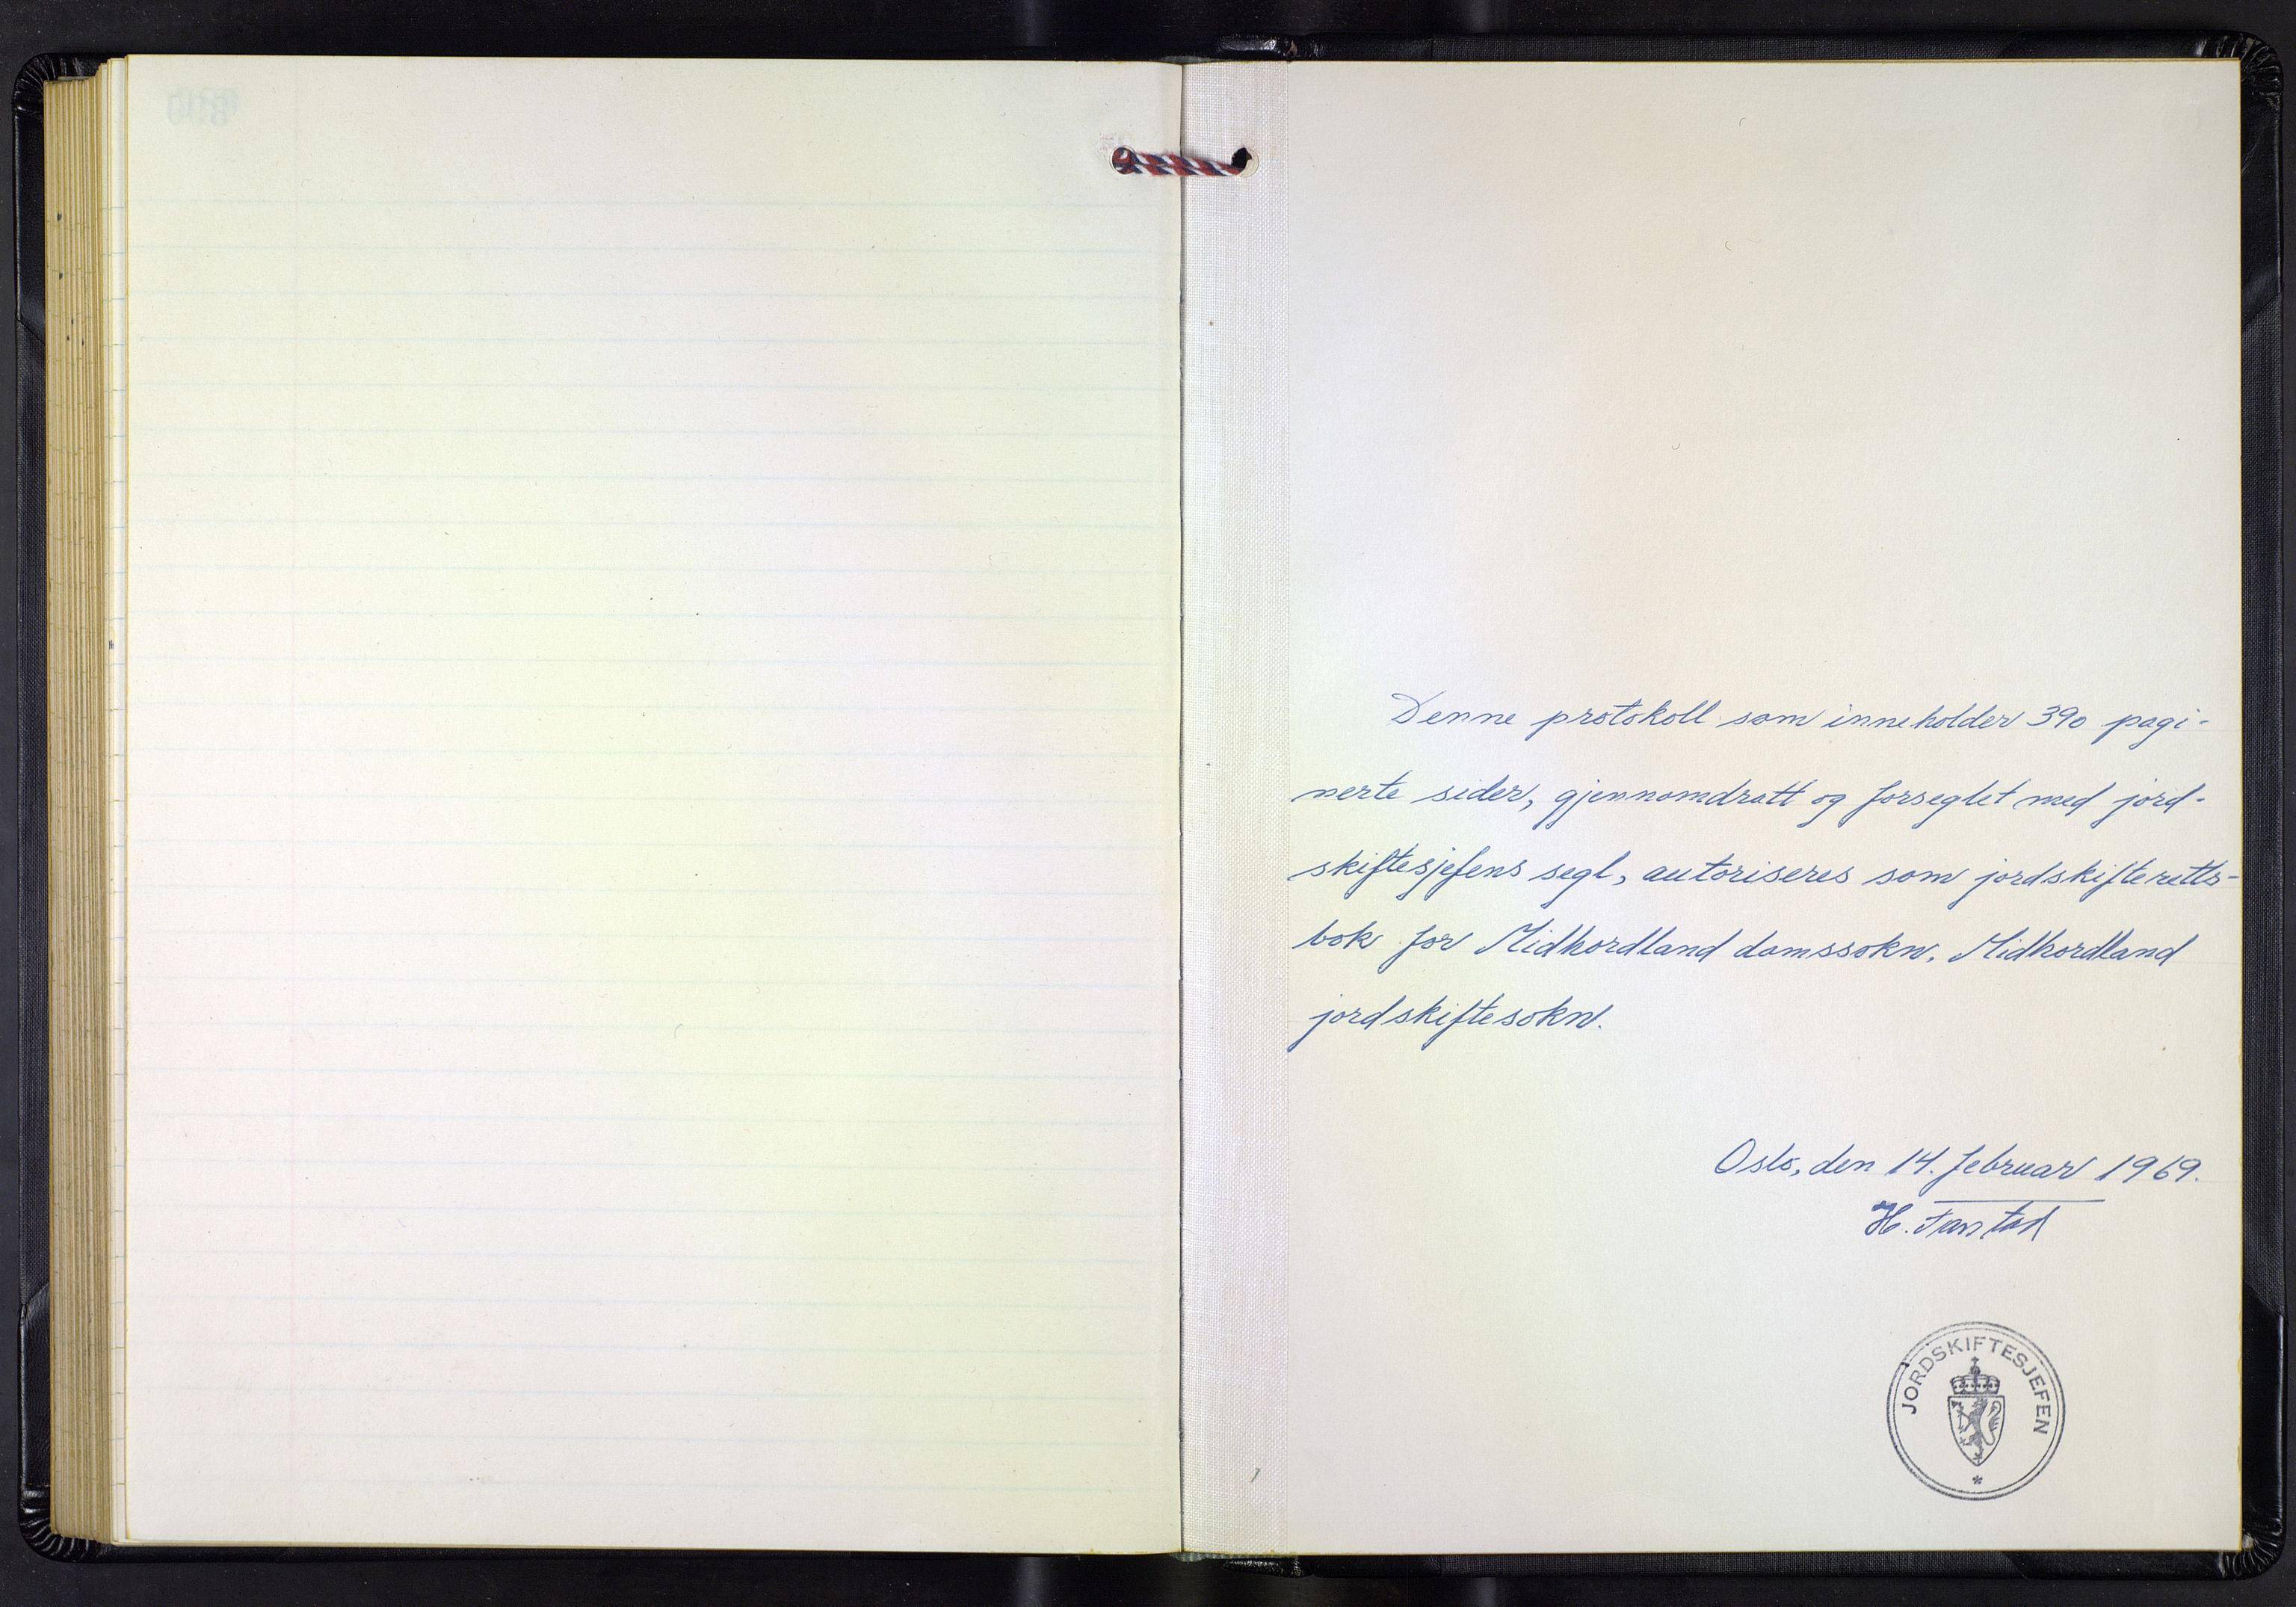 Denne protokoll som inneholder 390 pagi-
nerte sider, gjennomdratt og forseglet med jord-
skiftesjefens segl, autoriseres som jordskifteretts-
bok for Midhordland domssokn. Midhordland
jordskiftesokn.
Oslo, den 14. februar 1969.
H.
JORDSKIFTESJEFEN
*